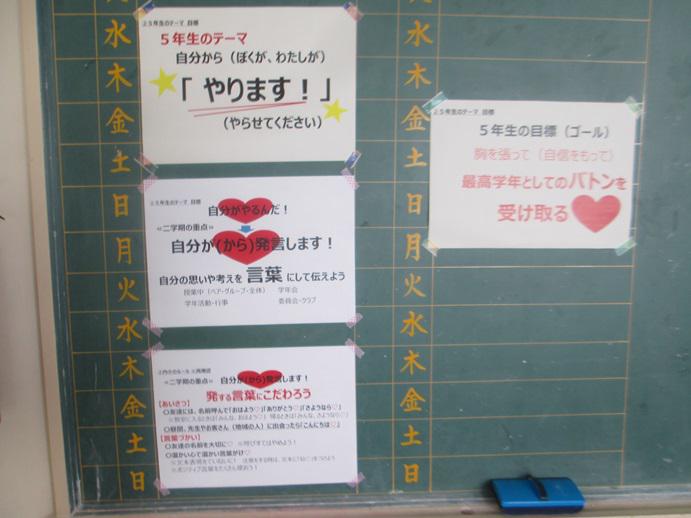 水
木
金
土
日
月
火
水
木
金
土
日
水
木
金
土
日
月
火
水
木
金
土
日
5年生のテーマ
自分から（ぼくが、わたしが）
「やります！」
（やらせてください）
自分がやるんだ！
≪二学期の重点≫
自分が(から)発言します！
自分の思いや考えを 言葉 にして伝えよう
授業中（ペア・グループ・全体） 学年会
学年活動・行事 委員会・クラブ
≪二学期の重点≫ 自分が(から)発言します！
発する言葉にこだわろう
【あいさつ】
〇友達には、名前呼んで「おはよう♡」「ありがとう♡」「さようなら♡」
〇昼間、先生やお客さん（地域の人）に出会ったら「こんにちは♡」
【言葉づかい】
〇友達の名前を大切に♡ ※呼びすてはやめよう！
〇温かい心で温かい言葉がけ♡
5年生のテーマ 目標
5年生の目標（ゴール）
胸を張って（自信をもって）
最高学年としてのバトンを
受け取る